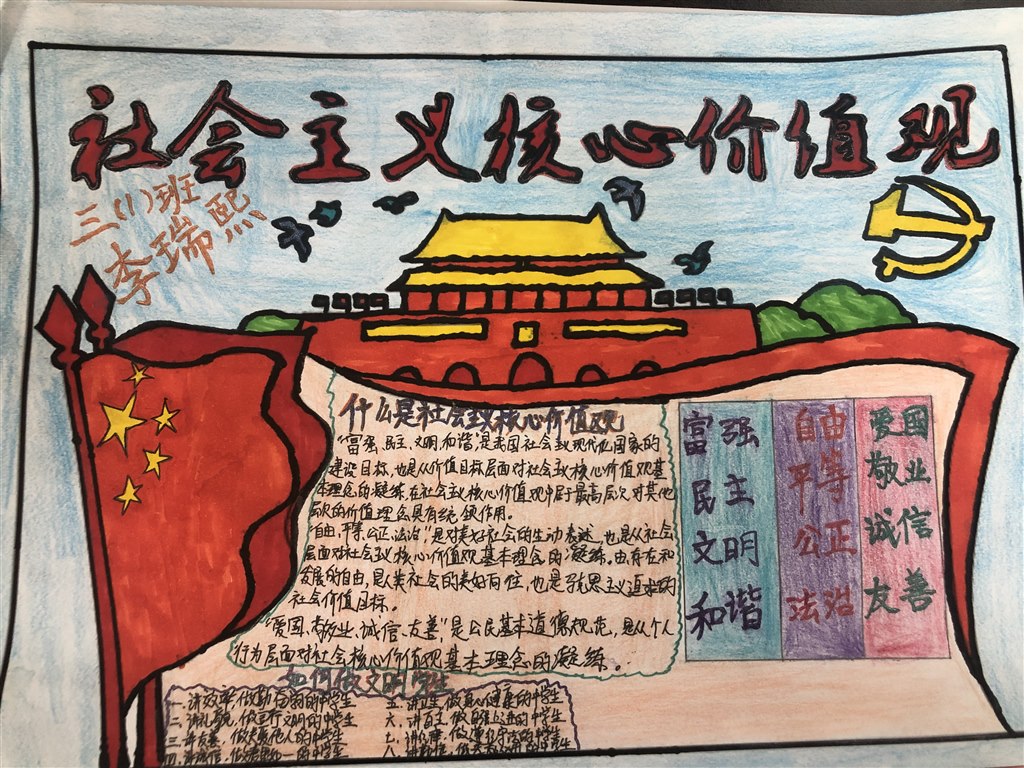 社会主义核心价值观
三(1)班
李瑞熙
什么是社会主义核心价值观
"富强、民主、文明、和谐",是我国社会主义现代化国家的
建设目标,也是从价值目标层面对社会主义核心价值观基
本理念的凝练,在社会主义核心价值观中居于最高层次,对其他
层次的价值理念具有统领作用。
"自由、平等、公正、法治",是对美好社会的生动表述,也是从社会
层面对社会主义核心价值观基本理念的凝练。由存在和
发展的自由,是人类社会的美好向往,也是马克思主义追求的
社会价值目标。
"爱国、敬业、诚信、友善",是公民基本道德规范,是从个人
行为层面对社会核心价值观基本理念的凝练。
富强
民主
文明
和谐
自由
平等
公正
法治
爱国
敬业
诚信
友善
如何做文明学生
一.讲效率,做勤的中学生
二.讲礼貌,做言行文明的中学生
三.讲友善,做关爱他人的中学生
四.讲诚信,做的中学生
五.讲卫生,做身心健康的中学生
六.讲自主,做自强上进的中学生
七.讲,做遵纪守法的中学生
八.讲,做的中学生